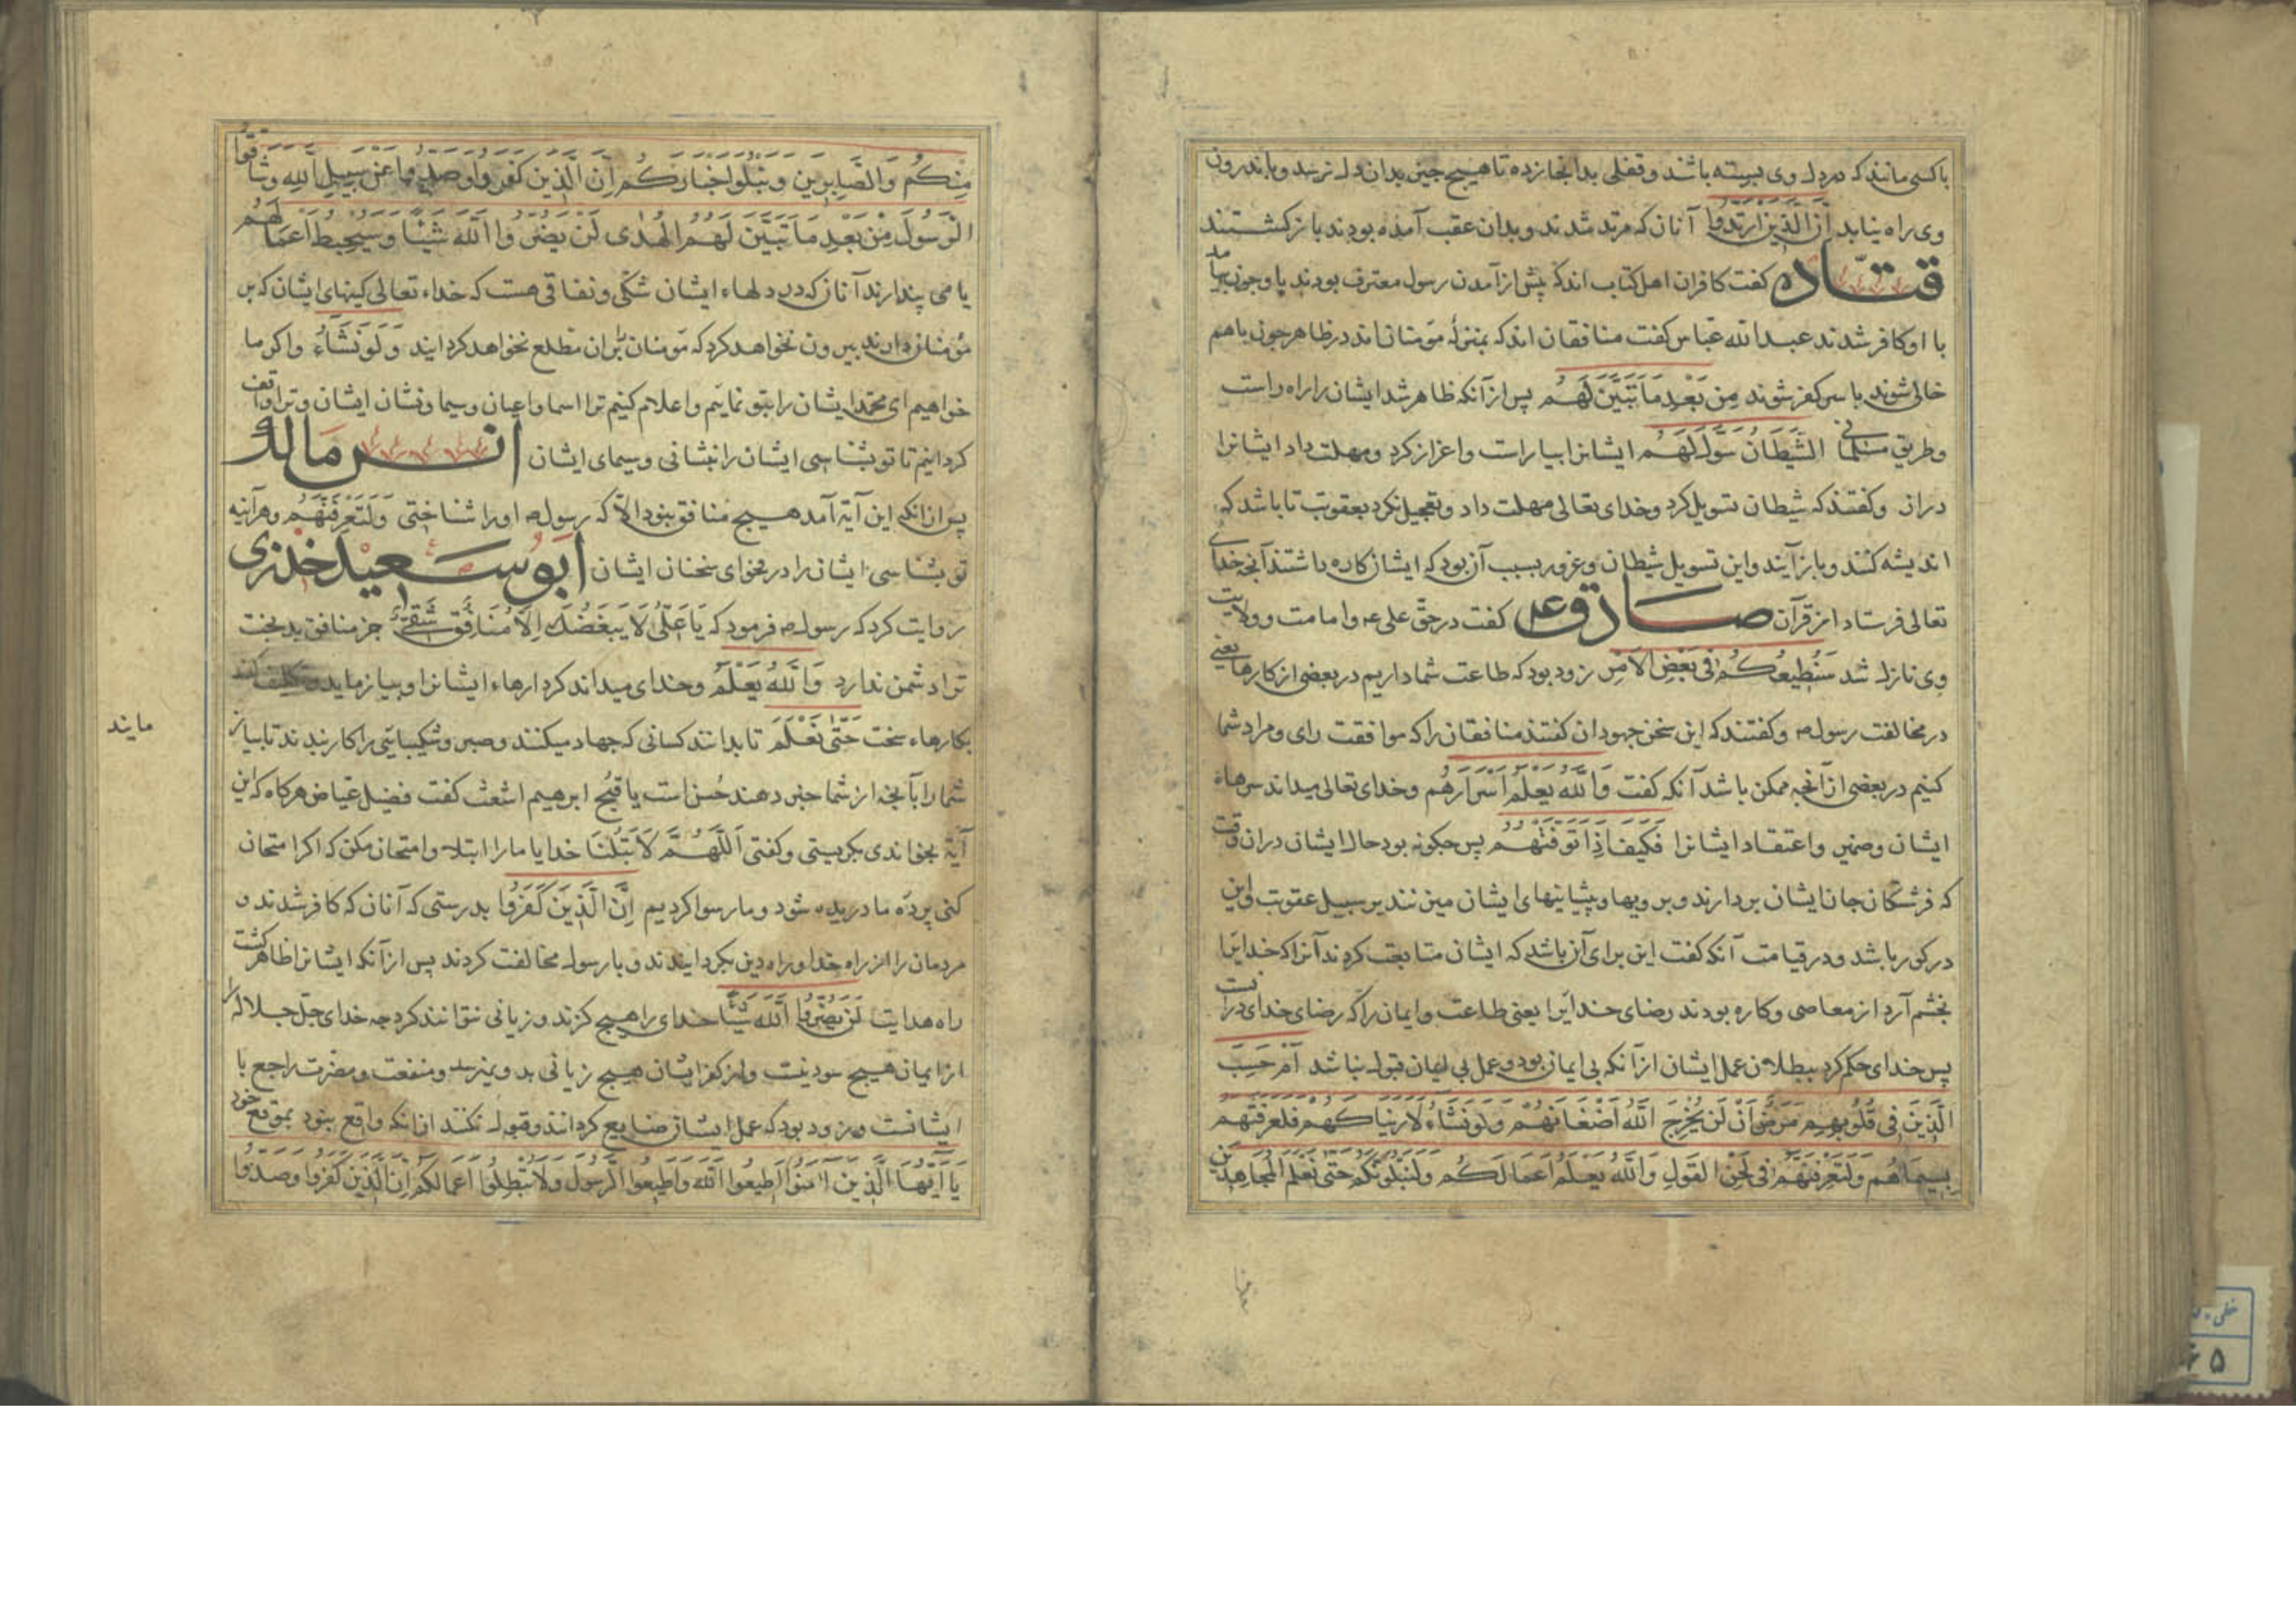 باکسی مانند که در دل وی بسته باشند و قفلی بدانجا زده تا هیچ چیز بدان دل نرسد و باندرون
وی راه نیابد اِنَّ الَّذِینَ ارْتَدُّوا آنان که مرتد شدند و بدان عقب آمده بودند بازکشتند
قتاده کفت کافران اهل کتاب اند که پیش از آمدن رسول معترف بودند باو چون بیامد
با او کافر شدند عبدالله عباس کفت منافقان اند که بمنزلهٔ مؤمنان اند در ظاهر چون باهم
خالی شوند با سر کفر شوند مِن بَعْدِ مَا تَبَیَّنَ لَهُم پس از آنکه ظاهر شد ایشان را راه راست
وطریق مسلمانی الشَّیْطَانُ سَوَّلَ لَهُم ایشانرا بیاراست و اغراز کرد ومهلت داد ایشانرا
دراز وکفتند که شیطان تسویل کرد وخدای تعالی مهلت داد وتعجیل نکرد بعقوبت تا باشد که
اندیشه کنند وباز آیند واین تسویل شیطان وغرور بسبب آن بود که ایشان کاره داشتند آنچه خدای
تعالی فرستاد از قرآن صادق ع کفت در حق علی ع وامامت و ولایت
وی نازل شد سَنُطِیعُکُم فی بَعْضِ الاَمْرِ زود بود که طاعت شما داریم در بعضی از کارها یعنی
در مخالفت رسول ص وکفتند که این سخن جهودان کفتند منافقان را که موافقت رای ومراد شما
کنیم در بعضی از آنچه ممکن باشد آنکه کفت وَاللّهُ یَعْلَمُ اَسْرَارَهُم وخدای تعالی میداند سرهاء
ایشان وضمیر واعتقاد ایشانرا فَکَیْفَ اِذَا تَوَفَّتْهُم پس چکونه بود حال ایشان دران وقت
که فرشتکان جان ایشان بردارند وبر رویها وپیشانیهای ایشان میزنند بر سبیل عقوبت واین
در کور باشد ودر قیامت آنکه کفت این برای آن باشد که ایشان متابعت کردند آنرا که خدایرا
بخشم آرد از معاصی وکاره بودند رضای خدایرا یعنی طاعت وایمان را که رضای خدای دراینست
پس خدای حکم کرد ببطلان عمل ایشان از آنکه بی ایمان بود وعمل بی ایمان قبول نباشد اَمْ حَسِبَ
الَّذِینَ فی قُلُوبِهِم مَرَضٌ اَنْ لَن یُخْرِجَ اللّهُ اَضْغَانَهُمْ وَلَوْ نَشَاءُ لَاَرَیْنَاکَهُمْ فَلَعَرَفْتَهُم
بِسِیمَاهُم وَلَتَعْرِفَنَّهُمْ فی لَحْنِ القَوْلِ وَاللّهُ یَعْلَمُ اَعْمَالَکُم وَلَنَبْلُوَنَّکُم حَتَّی نَعْلَمَ المُجَاهِدِینَ
مِنْکُم وَالصَّابِرِینَ وَنَبْلُوَا اَخْبَارَکُم اِنَّ الَّذِینَ کَفَرُوا وَصَدُّوا عَنْ سَبِیلِ اللّهِ وَشَاقُّوا
الرَّسُولَ مِنْ بَعْدِ مَا تَبَیَّنَ لَهُمُ الهُدَی لَنْ یَضُرُّوا اللّهَ شَیْئًا وَسَیُحْبِطُ اَعْمَالَهُم
یا می پندارند آنان که در دلهاء ایشان شکی ونفاقی هست که خداء تعالی کینهای ایشان که بر
مؤمنان دارند بیرون نخواهد کرد که مؤمنان بران مطلع نخواهد کردایند وَلَوْ نَشَاءُ واکر ما
خواهیم ای محمد ایشان را بتو نمائیم واعلام کنیم ترا اسما واعیان وسیما ونشان ایشان وترا واقف
کردانیم تا تو بشناسی ایشان را بنشانی وسیمای ایشان انس مالک
پس ازانکه این آیة آمد هیچ منافق نبود الا که رسول ص اورا شناختی وَلَتَعْرِفَنَّهُم وهرآینه
تو بشناسی ایشان را در فحوای سخنان ایشان ابوسعید خدری
روایت کرد که رسول ص فرمود که یَا عَلِیُّ لَا یَبْغَضُکَ اِلَّا مُنَافِقٌ شَقِیٌّ جز منافق بدبخت
ترا دشمن ندارد وَاللّهُ یَعْلَمُ وخدای میداند کردارهاء ایشانرا وبیازماید وتکلیف کند
بکارهاء سخت حَتّی نَعْلَمَ تا بدانند کسانی که جهاد میکنند وصبر وشکیبائی را کار بندند تا بیاز
مایند
شما را بآنچه از شما خبر دهند حُسن است یا قبُح ابرهیم اشعث کفت فضیل عیاض هرکاه که این
آیة بخواندی بکریستی وکفتی اَللَّهُمَّ لَا تَبْتَلِنَا خدایا مارا ابتلا وامتحان مکن که اکر امتحان
کنی پرده ما دریده شود وما رسوا کردیم اِنَّ الَّذِینَ کَفَرُوا بدرستی که آنان که کافر شدند و
مردمان را از راه خدا وراه دین بکردایندند وبا رسول مخالفت کردند پس از آنکه ایشانرا ظاهر کشت
راه هدایت لَن یَضُرُّوا اللّهَ شَیْئًا خدای را هیچ کزند وزیانی نتوانند کرد چه خدای جل جلاله را
از ایمان هیچ سود نیست واز کفر ایشان هیچ زیانی بدو نمیرسد ومنفعت ومضرت راجع با
ایشانست وزود بود که عمل ایشان ضایع کردانند وقبول نکنند ازانکه واقع نبود بموقع خود
یَا اَیُّهَا الَّذِینَ آمَنُوا اَطِیعُوا اللّهَ وَاَطِیعُوا الرَّسُولَ وَلَا تُبْطِلُوا اَعْمَالَکُم اِنَّ الَّذِینَ کَفَرُوا وَصَدُّوا